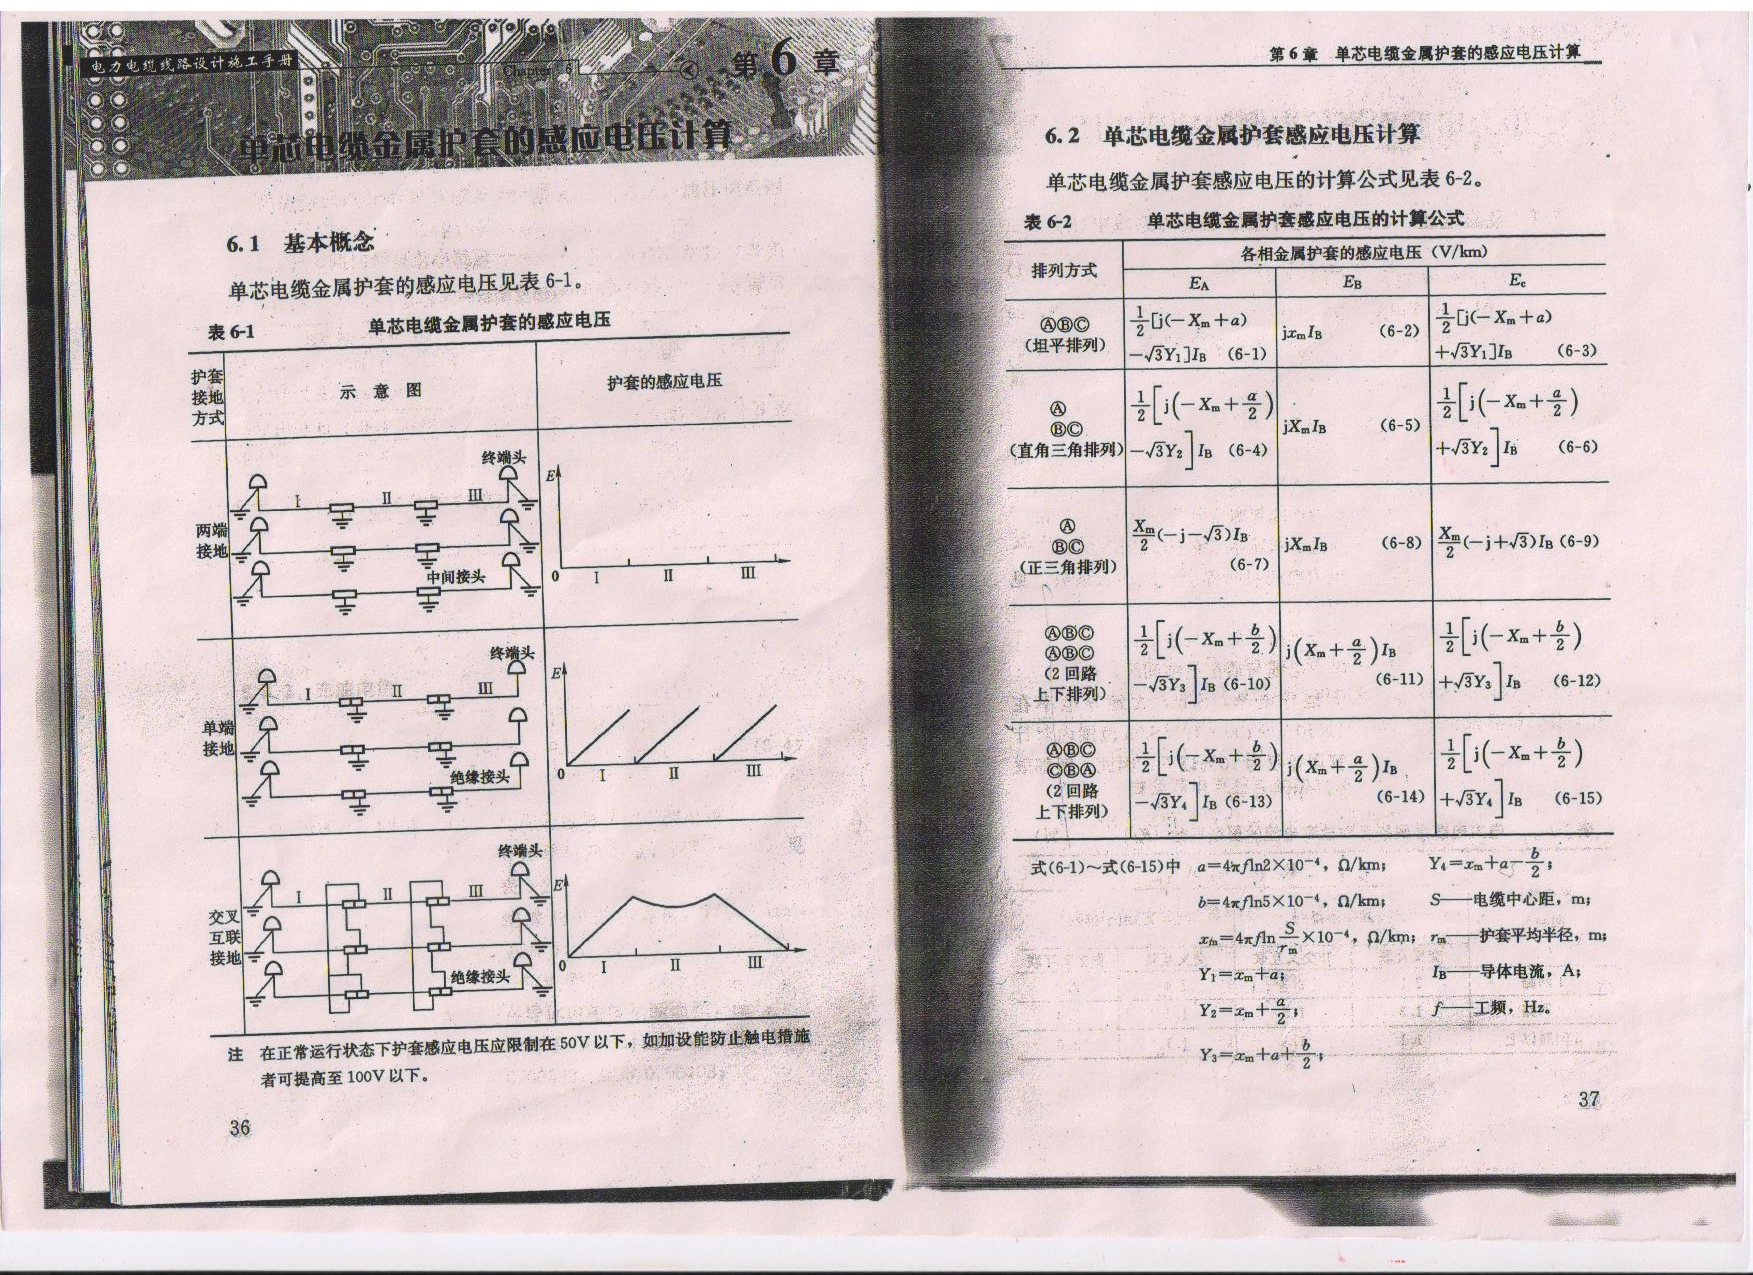 电力电缆线路设计施工手册
Chapter 6
第6章
单芯电缆金属护套的感应电压计算
6.1 基本概念
单芯电缆金属护套的感应电压见表 6-1。
表 6-1 单芯电缆金属护套的感应电压
护套接地方式 示意图 护套的感应电压
两端接地
终端头
I II III
中间接头
E
0 I II III
单端接地
终端头
I II III
绝缘接头
E
0 I II III
交叉互联接地
终端头
I II III
绝缘接头
E
0 I II III
注 在正常运行状态下护套感应电压应限制在 50V 以下，如加设能防止触电措施
者可提高至 100V 以下。
36
第 6 章 单芯电缆金属护套的感应电压计算
6.2 单芯电缆金属护套感应电压计算
单芯电缆金属护套感应电压的计算公式见表 6-2。
表 6-2 单芯电缆金属护套感应电压的计算公式
排列方式 各相金属护套的感应电压（V/km）
E_A E_B E_c
ⒶⒷⒸ
（坦平排列）
1/2[j(−X_m+a)
−√3Y₁]I_B (6-1)
jx_mI_B (6-2)
1/2[j(−X_m+a)
+√3Y₁]I_B (6-3)
Ⓐ
ⒷⒸ
（直角三角排列）
1/2[j(−X_m+a/2)
−√3Y₂]I_B (6-4)
jX_mI_B (6-5)
1/2[j(−X_m+a/2)
+√3Y₂]I_B (6-6)
Ⓐ
ⒷⒸ
（正三角排列）
X_m/2(−j−√3)I_B
(6-7)
jX_mI_B (6-8)
X_m/2(−j+√3)I_B (6-9)
ⒶⒷⒸ
ⒶⒷⒸ
（2 回路
上下排列）
1/2[j(−X_m+b/2)
−√3Y₃]I_B (6-10)
j(X_m+a/2)I_B
(6-11)
1/2[j(−X_m+b/2)
+√3Y₃]I_B (6-12)
ⒶⒷⒸ
ⒸⒷⒶ
（2 回路
上下排列）
1/2[j(−X_m+b/2)
−√3Y₄]I_B (6-13)
j(X_m+a/2)I_B
(6-14)
1/2[j(−X_m+b/2)
+√3Y₄]I_B (6-15)
式(6-1)～式(6-15)中 a=4πfln2×10⁻⁴，Ω/km； Y₄=x_m+a−b/2；
b=4πfln5×10⁻⁴，Ω/km； S——电缆中心距，m；
x_m=4πfln S/r_m×10⁻⁴，Ω/km； r_m——护套平均半径，m；
Y₁=x_m+a； I_B——导体电流，A；
Y₂=x_m+a/2； f——工频，Hz。
Y₃=x_m+a+b/2；
37